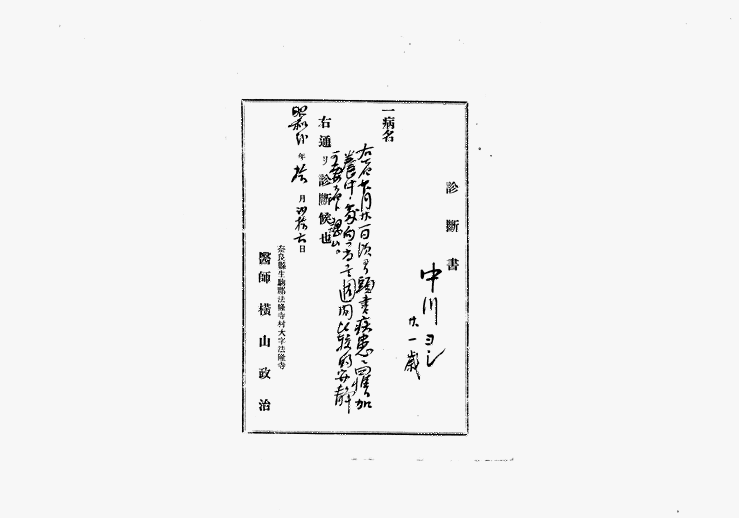 診斷書
中川ヨシ
廿一歳
一病名
右者十月廿一日頃ヨリ頭書疾患ニ罹リ加
養中ノ処向フ壱週間比較的安静
ヲ要ス
右通リ診斷候也
昭和 年拾月 日
奈良縣生駒郡法隆寺村大字法隆寺
醫師 横山政治